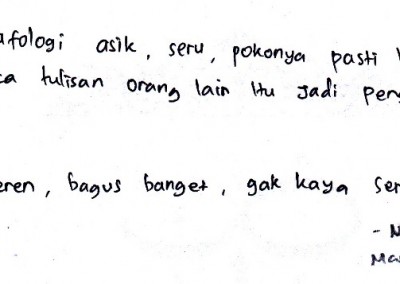 afologi asik, seru, pokonya pasti
ca tulisan orang lain itu jadi pen
eren, bagus banget, gak kaya ser
- N
Ma